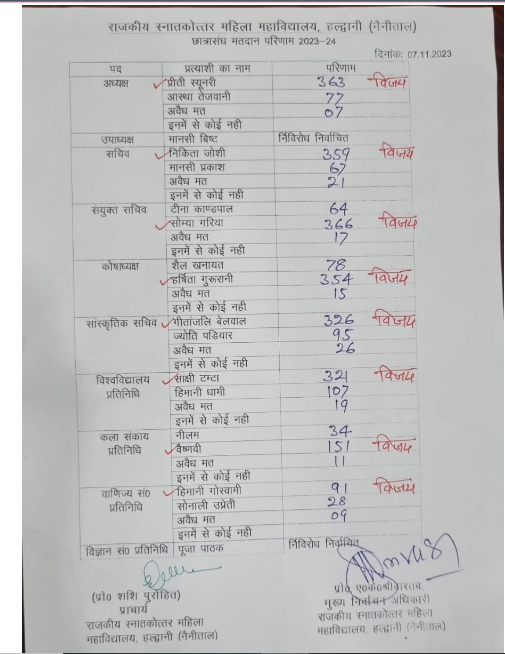 राजकीय स्नातकोत्तर महिला महाविद्यालय, हल्द्वानी (नैनीताल)
छात्रासंघ मतदान परिणाम 2023–24
दिनांक: 07.11.2023
पद प्रत्याशी का नाम परिणाम
अध्यक्ष प्रीती स्यूनरी 363 विजय
आस्था तेजवानी 77
अवैध मत 07
इनमें से कोई नही
उपाध्यक्ष मानसी बिष्ट र्निविरोध निर्वाचित
सचिव निकिता जोशी 359 विजय
मानसी प्रकाश 67
अवैध मत 21
इनमें से कोई नही
संयुक्त सचिव टीना काण्डपाल 64
सोम्या गरिया 366 विजय
अवैध मत 17
इनमें से कोई नही
कोषाध्यक्ष शैल खनायत 78
हर्षिता गुरूरानी 354 विजय
अवैध मत 15
इनमें से कोई नही
सांस्कृतिक सचिव गीतांजलि बेलवाल 326 विजय
ज्योति पडियार 95
अवैध मत 26
इनमें से कोई नही
विश्वविद्यालय साक्षी टम्टा 321 विजय
प्रतिनिधि हिमानी धामी 107
अवैध मत 19
इनमें से कोई नही
कला संकाय नीलम 34
प्रतिनिधि वैष्णवी 151 विजय
अवैध मत 11
इनमें से कोई नही
वाणिज्य सं0 हिमानी गोस्वामी 91 विजय
प्रतिनिधि सोनाली उप्रेती 28
अवैध मत 09
इनमें से कोई नही
विज्ञान सं0 प्रतिनिधि पूजा पाठक र्निविरोध निर्वाचित
(प्रो0 शशि पुरोहित)
प्राचार्य
राजकीय स्नातकोत्तर महिला
महाविद्यालय, हल्द्वानी (नैनीताल)
प्रो0 ए0के0श्रीवास्तव,
मुख्य निर्वाचन अधिकारी
राजकीय स्नातकोत्तर महिला
महाविद्यालय, हल्द्वानी (नैनीताल)